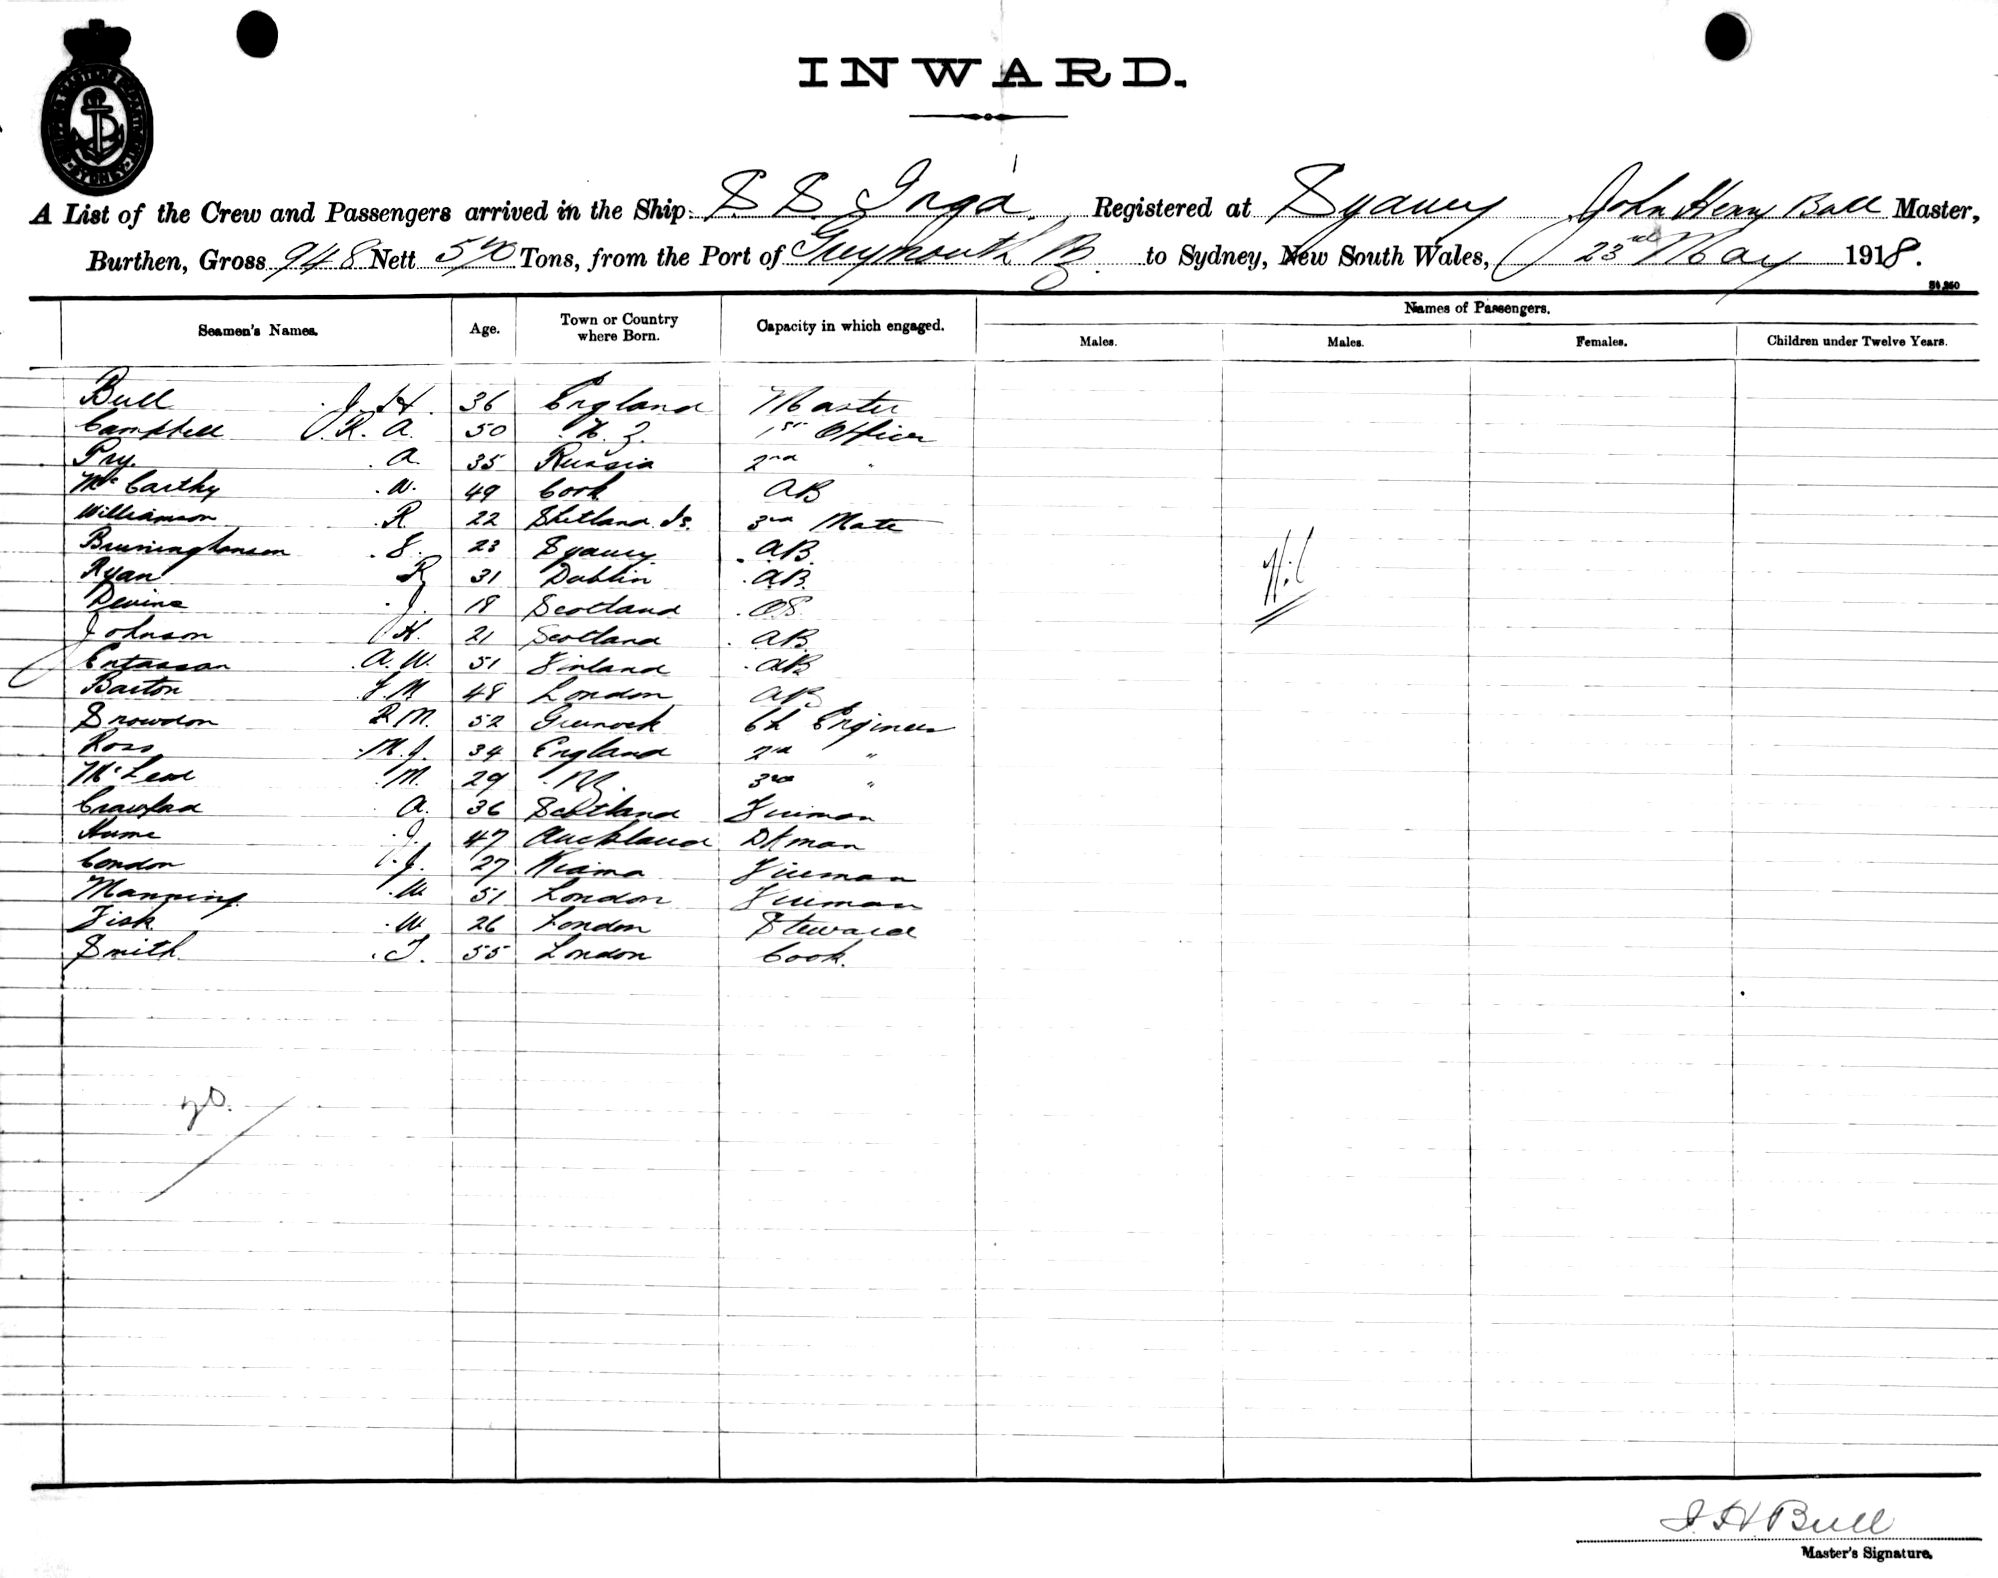 INWARD.
SYDNEY
A List of the Crew and Passengers arrived in the Ship S S Inga. Registered at Sydney John Henry Bull Master,
Burthen, Gross 948 Nett 570 Tons, from the Port of Greymouth to Sydney, New South Wales, 23rd May 1918.
Names of Passengers.
Seamen's Names. Age. Town or Country where Born. Capacity in which engaged. Males. Males. Females. Children under Twelve Years.
Bull J. H. 36 England Master
Campbell R. A. 50 N. Z. 1st Officer
Pry. A. 35 Russia 2nd "
McCarthy W. 49 Cork AB
Williamson R 22 Shetland Is. 3rd Mate
Bruninghausen S. 23 Sydney AB.
Ryan R 31 Dublin AB.
Devine J. 18 Scotland OS.
Johnson H. 21 Scotland AB.
A. W. 51 Finland AB
Barton F M 48 London AB
Snowdon R M. 52 Greenock Ch Engineer
Ross M. J. 34 England 2nd "
McLeod M. 29 NZ. 3rd "
Crawford A. 36 Scotland Fireman
Hume J. 47 Auckland Dkman
Condon J. 27 Kiama Fireman
Manning W 51 London Fireman
Fisk W 26 London Steward
Smith T. 55 London Cook.
Nil
20.
J. H. Bull
Master's Signature.